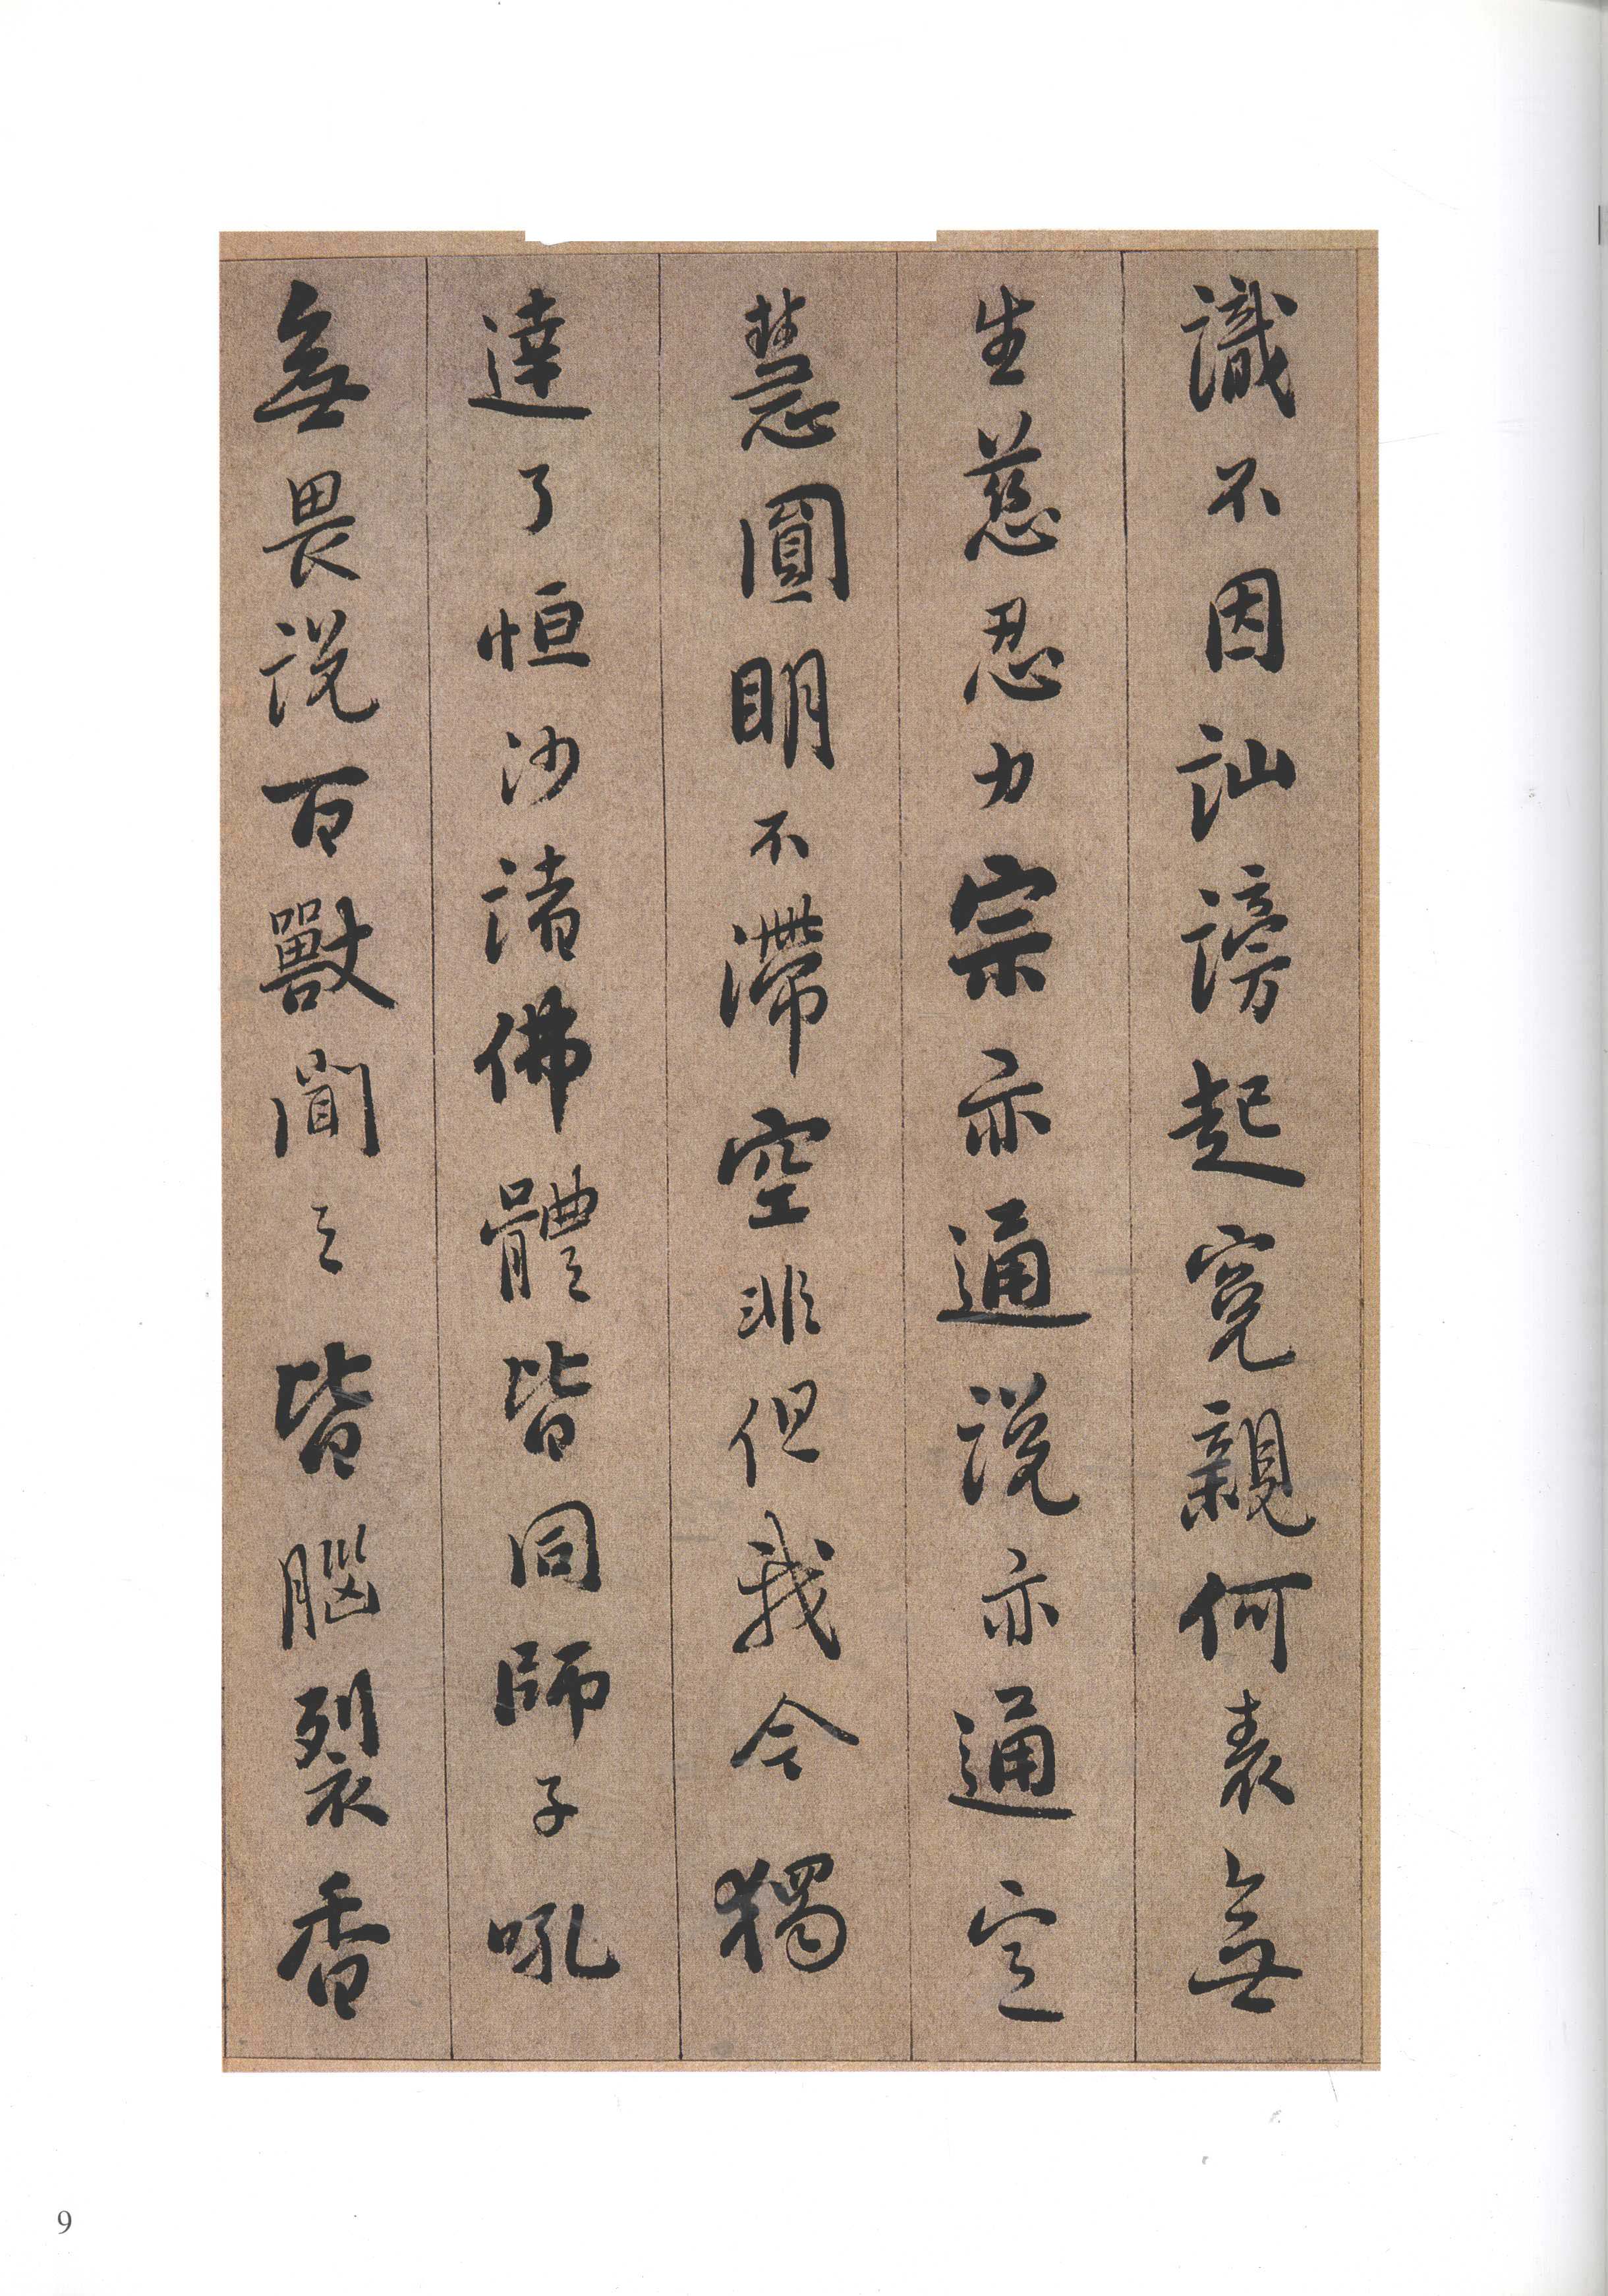 識不因訕謗起寃親何表無
生慈忍力宗亦通說亦通定
慧圓明不滯空非但我今獨
達了恒沙諸佛體皆同師子吼
無畏說百獸聞之皆腦裂香
9